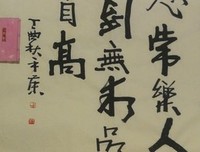 足常樂人
到無求品
自高
丁酉秋